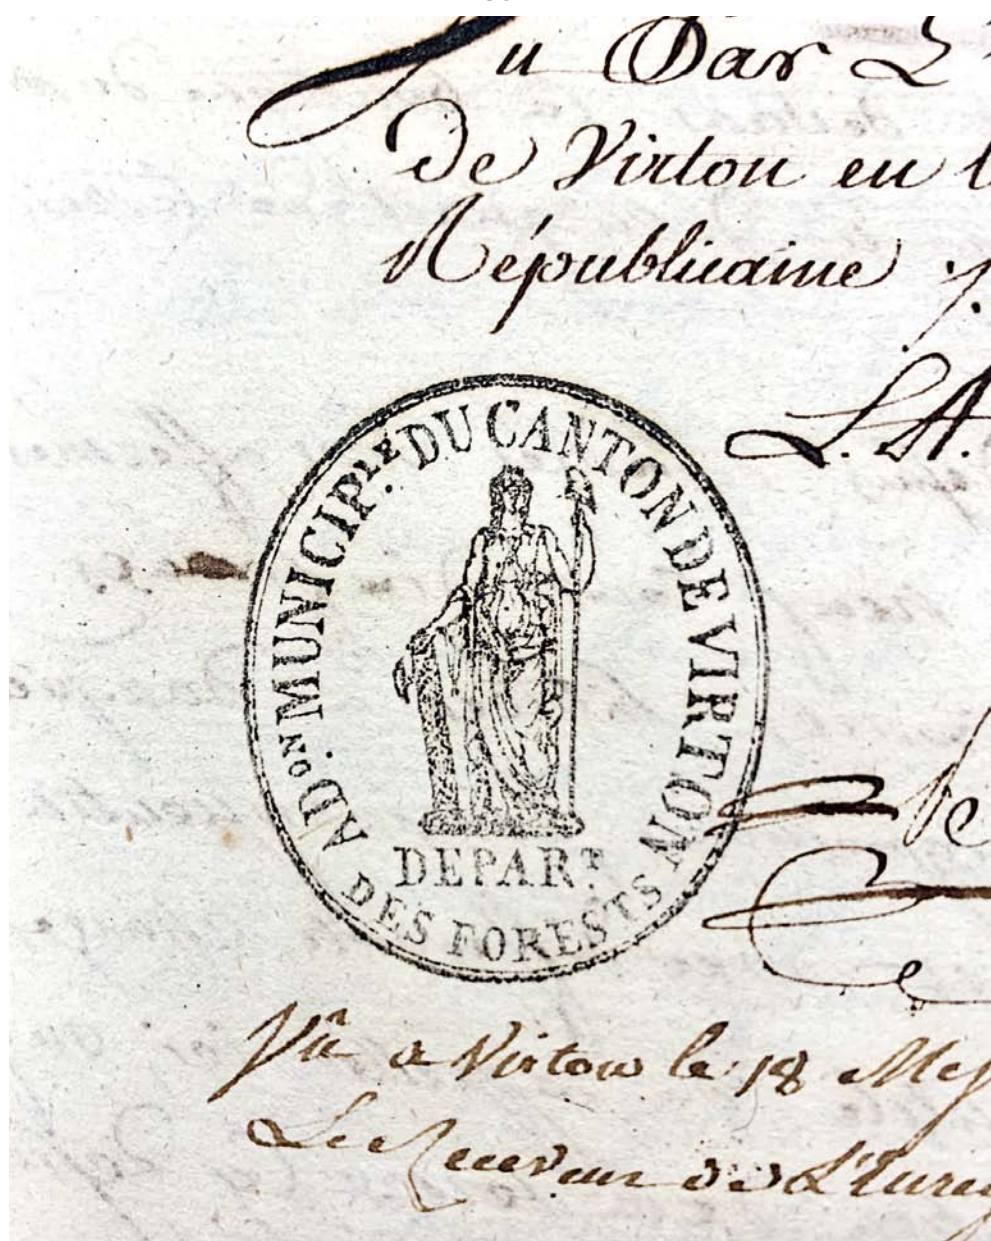 Vu Par L
de Virton en l
Républicaine
L. A.
ADON MUNICIPLE. DU CANTON DE VIRTON
DEPART.
DES FORESTS
Vu a Virton le 18 Mes
Le Receveur de L'Enreg